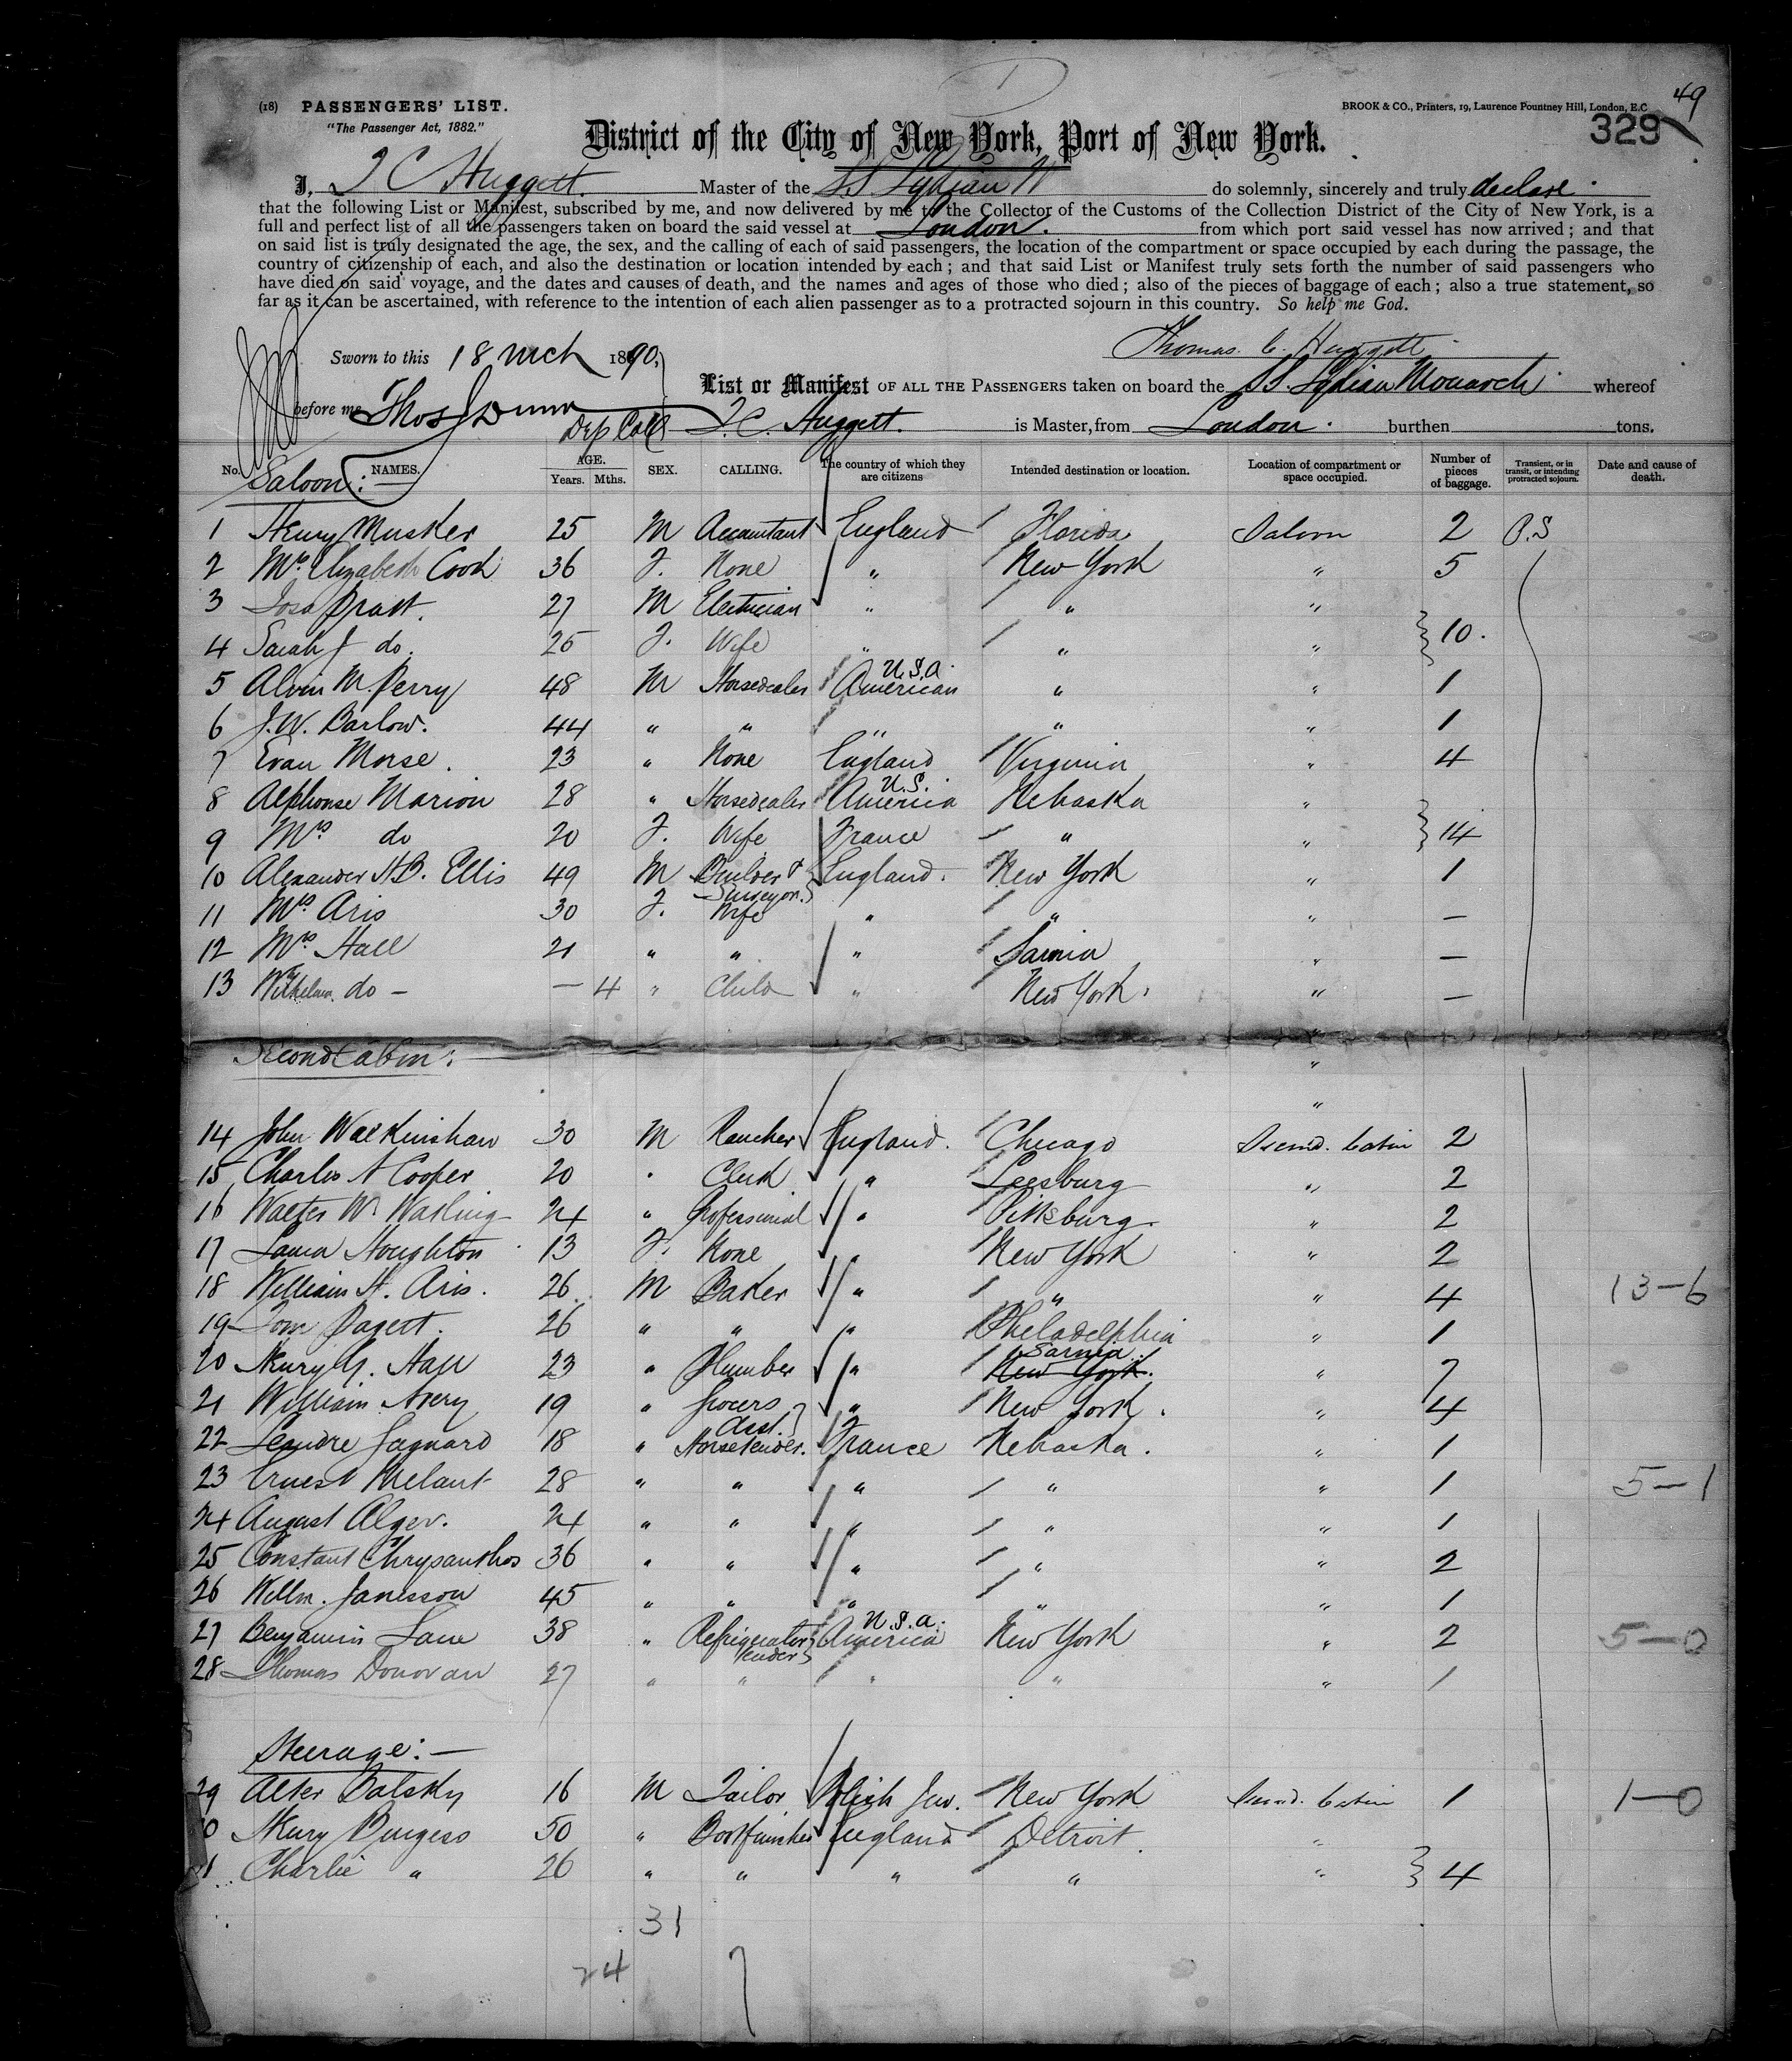 49
(18) PASSENGERS' LIST.
BROOK & CO., Printers, 19, Laurence Pountney Hill, London, E.C
"The Passenger Act, 1882."
329
District of the City of New York, Port of New York.
I, T C Huggett. Master of the SS Lydian M do solemnly, sincerely and truly declare
that the following List or Manifest, subscribed by me, and now delivered by me to the Collector of the Customs of the Collection District of the City of New York, is a
full and perfect list of all the passengers taken on board the said vessel at London. from which port said vessel has now arrived; and that
on said list is truly designated the age, the sex, and the calling of each of said passengers, the location of the compartment or space occupied by each during the passage, the
country of citizenship of each, and also the destination or location intended by each; and that said List or Manifest truly sets forth the number of said passengers who
have died on said voyage, and the dates and causes of death, and the names and ages of those who died; also of the pieces of baggage of each; also a true statement, so
far as it can be ascertained, with reference to the intention of each alien passenger as to a protracted sojourn in this country. So help me God.
Thomas. C. Huggett
Sworn to this 18 Mch 1890.
List or Manifest OF ALL THE PASSENGERS taken on board the SS. Lydian Monarch whereof
before me Thos J Dunn
Dep Coll
T. C. Huggett. is Master, from London. burthen tons.
No. NAMES. AGE. Years. Mths. SEX. CALLING. The country of which they are citizens Intended destination or location. Location of compartment or space occupied. Number of pieces of baggage. Transient, or in transit, or intending protracted sojourn. Date and cause of death.
Saloon:—
1 Henry Musker 25 M Accountant England Florida Saloon 2 P.S
2 Mrs Elizabeth Cook 36 F. None " New York " 5
3 Pratt. 27 M Electrician " " "
4 Sarah J do. 25 F. Wife " " " } 10.
5 Alvin M. Perry 48 M Horsedealer U.S.A. American " " 1
6 J. W. Barlow. 44 " " " " " 1
7 Evan Morse. 23 " None England Virginia " 4
8 Alphonse Marion 28 " Horsedealer U.S. America Nebraska "
9 Mrs do 20 F. Wife France " " } 14
10 Alexander H.B. Ellis 49 M Builder & Surveyor. England. New York " 1
11 Mrs Aris 30 F. Wife " " " —
12 Mrs Hall 21 " " " Sarnia " —
13 do — — 4 " Child " New York. " —
Second Cabin:
14 John Walkinshaw 30 M Rancher England. Chicago Second. Cabin 2
15 Charles A Cooper 20 " Clerk " Leesburg " 2
16 Walter W. Watling 24 " Professional " Pittsburg. " 2
17 Laura Houghton 13 F. None " New York " 2
18 William H. Aris. 26 M Baker " " " 4 13-6
19 Tom Pagett. 26 " " " Philadelphia " 1
20 Henry G. Hall 23 " Plumber " Sarnia New York. " 7
21 William Avery 19 " Grocers Asst. " New York. " 4
22 Leandre Jagnard 18 " Horsetender. France Nebraska. " 1
23 Ernest Melant 28 " " " " " 1 5-1
24 August Alger. 24 " " " " " 1
25 Constant Chrysanthos 36 " " " " " 2
26 Willm. Janesson 45 " " " " " 1
27 Benjamin Lane 38 " Refrigerator tender U.S.A. America New York " 2 5-0
28 Thomas Donovan 27 " " " " " 1
Steerage:—
29 Alter Balsky 16 M Tailor Polish Jew. New York Second. Cabin 1 1-0
0 Henry Burgess 50 " Bootfinisher England Detroit. "
1 Charlie " 26 " " " " " } 4
31
24 7